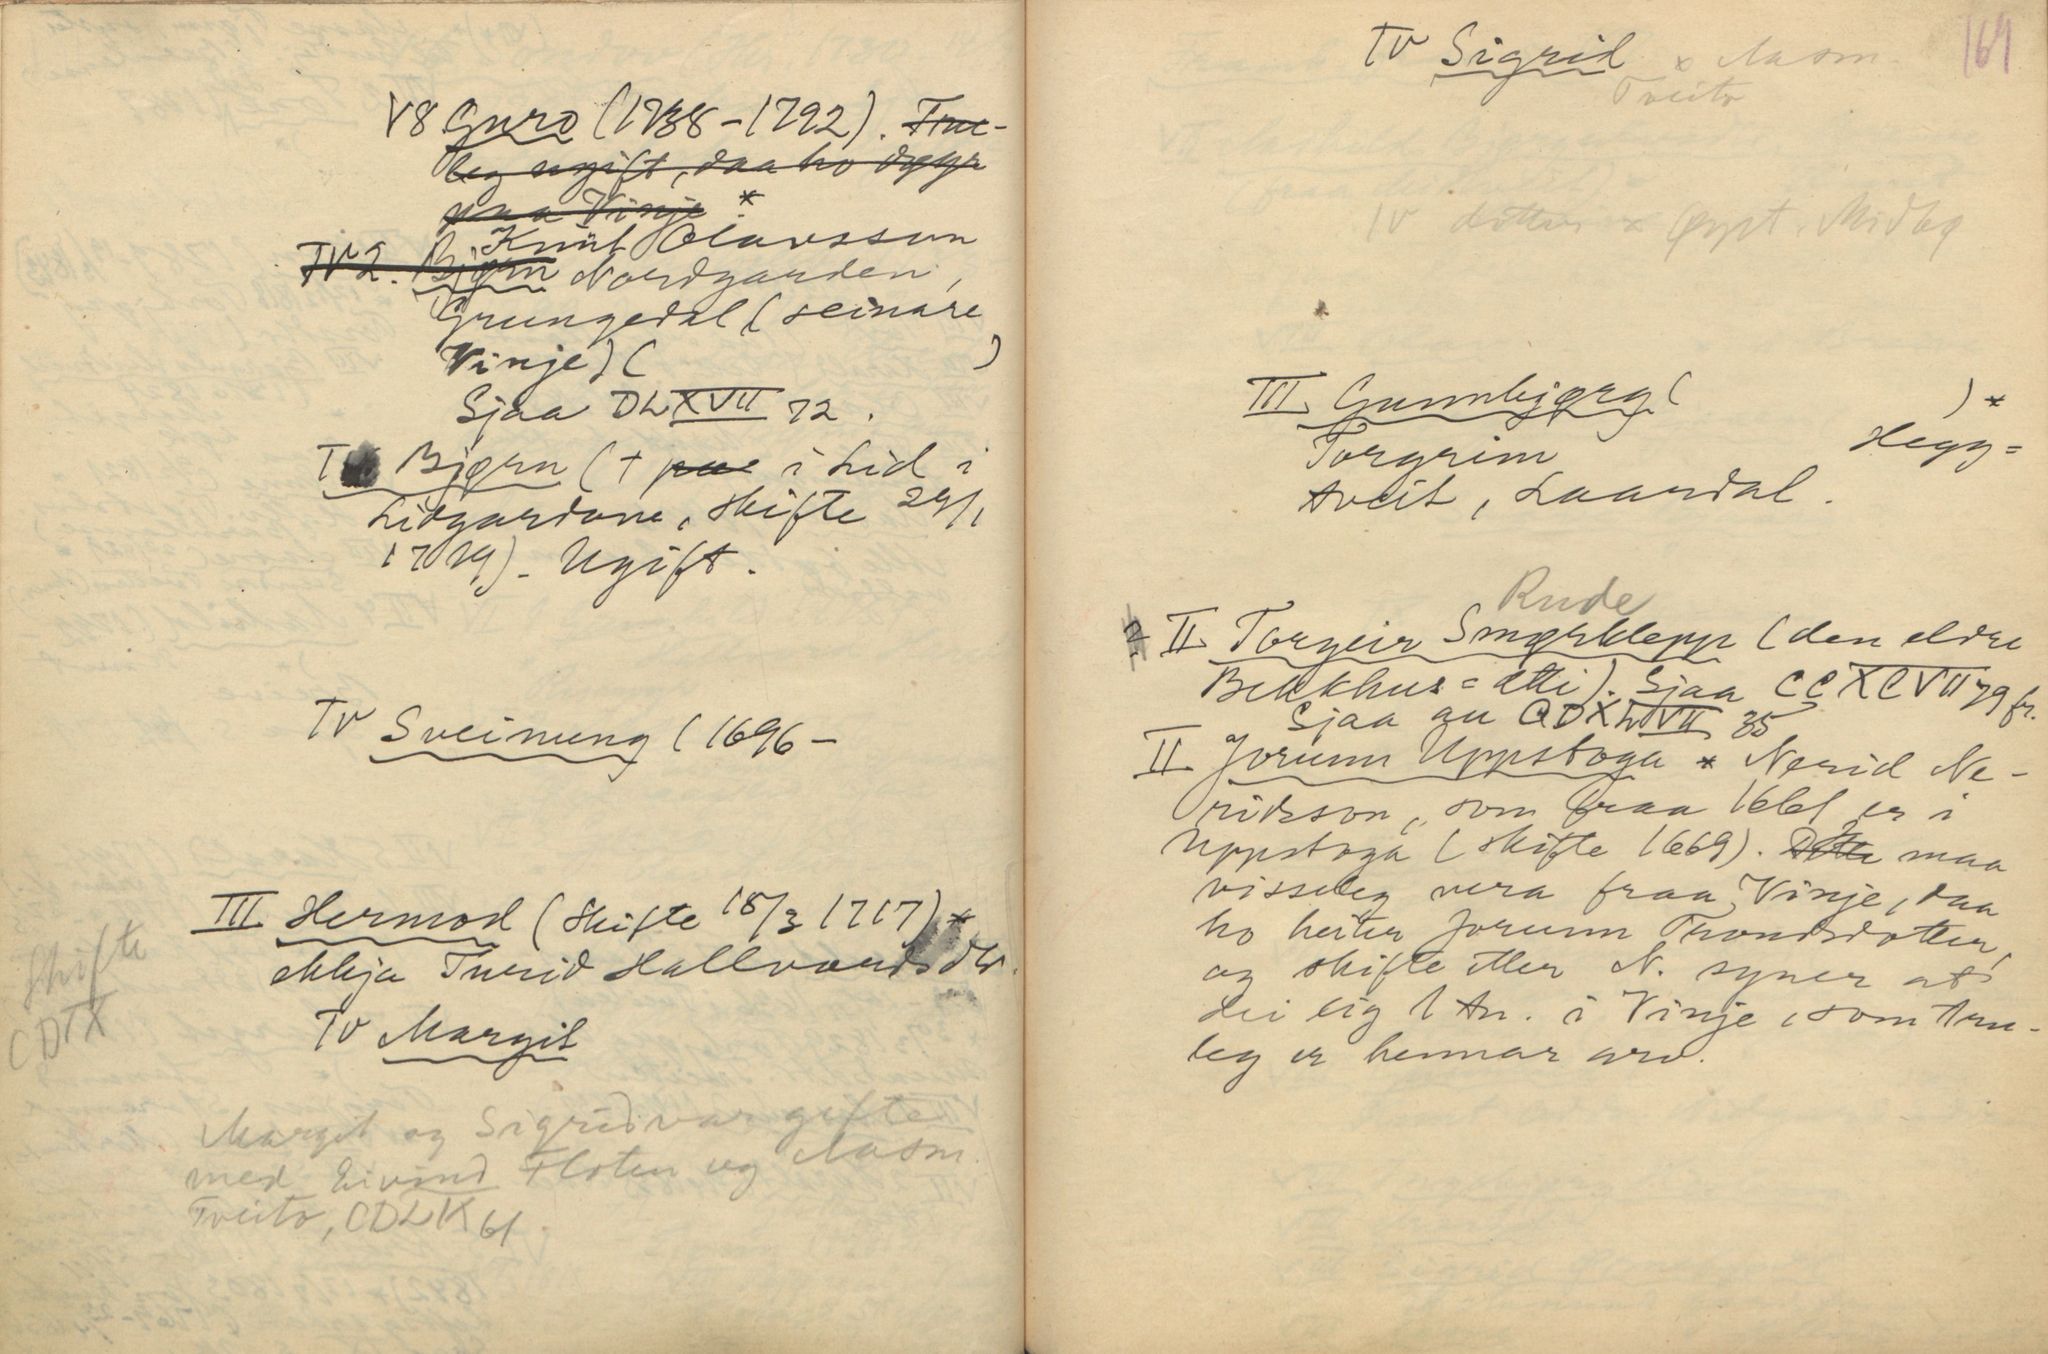 V8 Guro (1738-1792). Tru-
leg ugift, daa ho døyr
paa Vinje *
Knut Olavsson
IV 2. Bjørn Nordgarden,
Grungedal (seinare
Vinje) (            )
Sjaa DLXVII 72.
Bjørn (+ paa i Lid i
Lidgardane, skifte 29/1
1719). Ugift.
IV Sveinung (1696-
III Hermod (skifte 18/3 1717) *
ekkja Turid Hallvardsdtr.
Skifte
CDIX
IV Margit
Margit og Sigrid var gifte
med Eivind Floten og Aasm.
Tveito, CDLIX 61.
169
IV Sigrid x Aasm.
Tveito
IV dotter x Øyst. Midbø
III Gunnbjørg (            ) *
Torgrim            Hegg=
tveit, Laardal.
Rude
2. II Torgeir Smørklepp (den eldre
Bekkhus=ætti). Sjaa CCXCVII 79 fr.
Sjaa au CDXLVII 35
II Jorunn Uppstoga * Nerid Ne-
ridsson, som fraa 1661 er i
Uppstoga (skifte 1669). Dette maa
visseleg vera fraa Vinje, daa
ho heiter Jorunn Trondsdotter,
og skifte etter N. syner at
dei eig 1 tn. i Vinje, som tru-
leg er hennar arv.